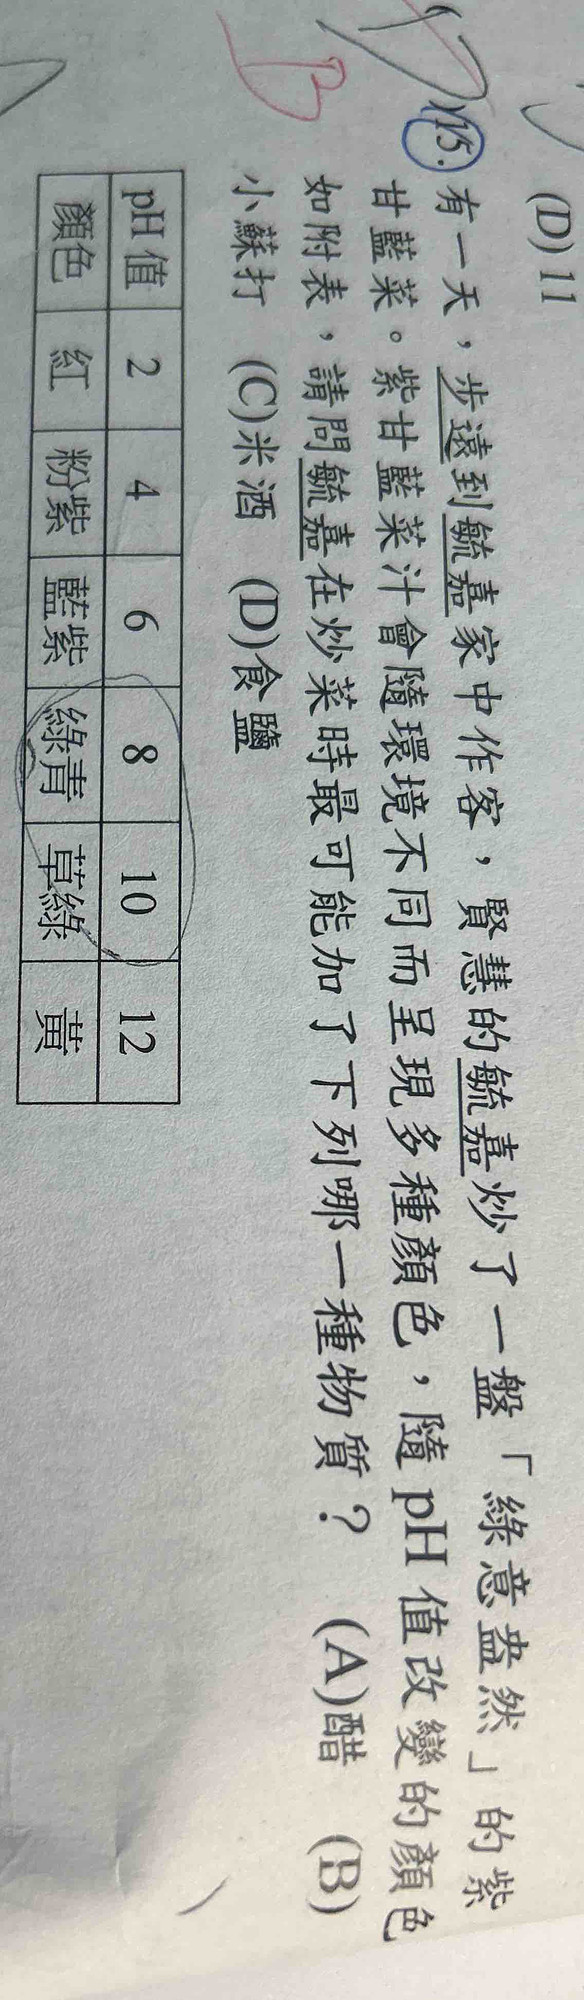 (D) 11
15. 有一天，步遠到毓嘉家中作客，賢慧的毓嘉炒了一盤「綠意盎然」的紫
甘藍菜。紫甘藍菜汁會隨環境不同而呈現多種顏色，隨 pH 值改變的顏色
如附表，請問毓嘉在炒菜時最可能加了下列哪一種物質？ (A)醋 (B)
小蘇打 (C)米酒 (D)食鹽
B
pH 值 2 4 6 8 10 12
顏色 紅 粉紫 藍紫 綠青 草綠 黃